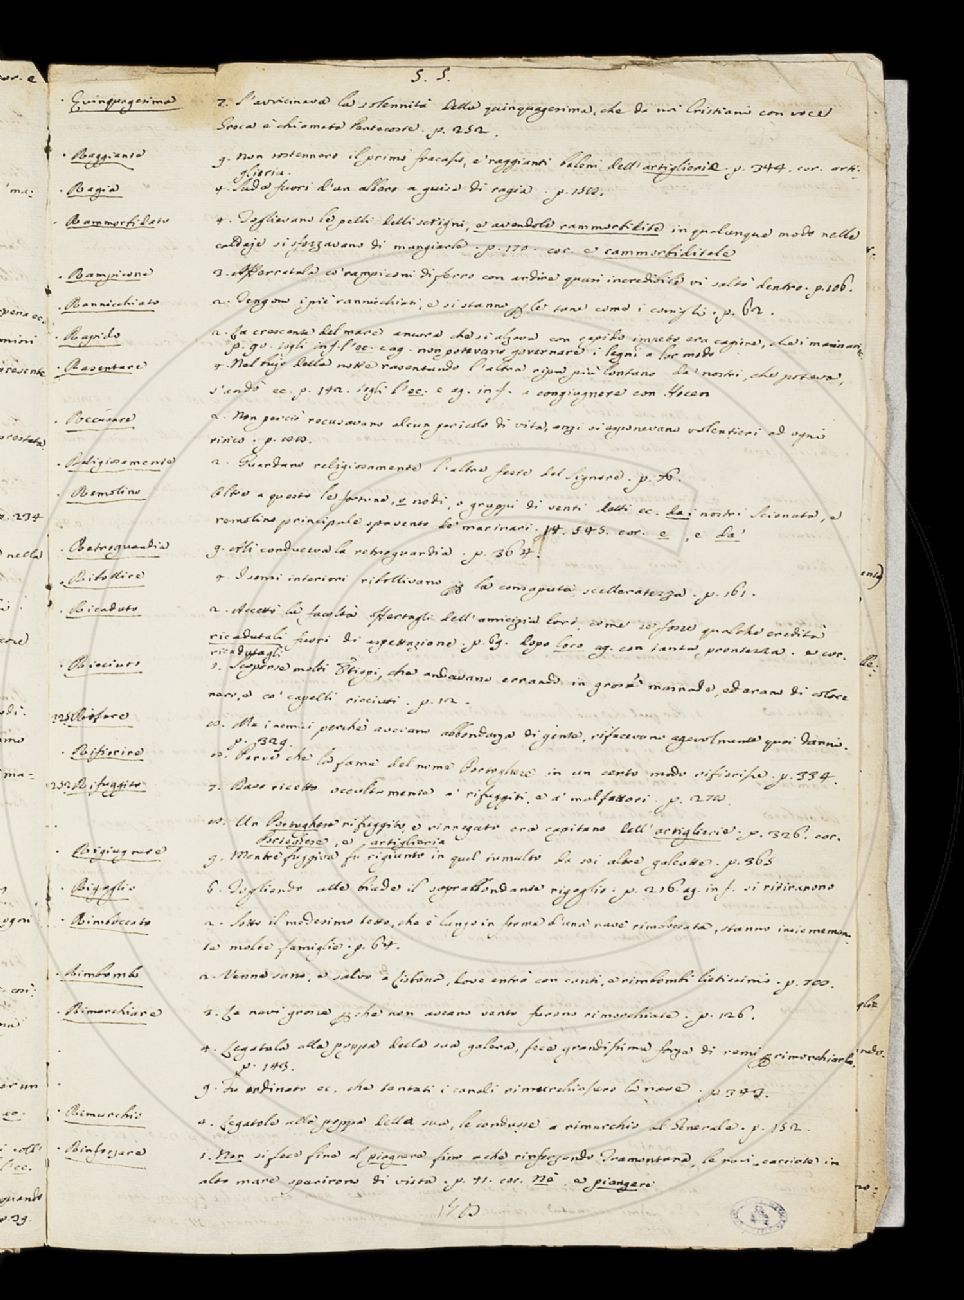 S. S.
Quinquagesima 7. S'avvicinava la solennità della quinquagesima, che da noi Cristiani con voce
Greca è chiamata Pentecoste. p. 252.
Raggiante 9. Non sostennero il primo fracasso, e raggianti baleni dell'artiglieria. p. 344. cor. arti-
glieria.
Ragia 4. Suda fuori d'un albero a guisa di ragia. p.
Rammorbidato 4. Toglievano le pelli delli serigni, e avendole rammorbidite in qualunque modo nelle
caldaje si sforzavano di mangiarle. p. 170. cor. e rammorbiditele
Rampicone 3. Afferratala co' rampiconi di ferro con ardire quasi incredibile vi saltò dentro. p. 106.
Rannicchiato 2. Tengono i piè rannicchiati, e si stanno per le tane come i conigli. p. 62.
Rapido 2. La crescente del mare ancora che si alzava con rapido impeto era cagione, che i marinari
p. 90. agli inf. l'ec. e ag. non potevano governare i legni a lor modo
Rasentare 4. Nel bujo della notte rasentando l'altra ripa più lontana da' nostri, che poteva,
s'andò ec. p. 142. agli l'ec. e ag. inf. a congiugnere con Hocen
Recusare 2. Non perciò recusavano alcun pericolo di vita, anzi si esponevano volentieri ad ogni
risico. p.
Religiosamente 2. Guardano religiosamente l'altre feste del Signore. p. 76.
Remolino Oltre a questo le fortune, e nodi, o gruppi di venti detti ec. da i nostri Scionata, e
remolino principale spavento de' marinari. p. 345. cor. e , e da'
Retroguardia 9. Alì conduceva la retroguardia. p. 364.
Ribollire 4. I sensi interiori ribollivano per la consaputa scelleratezza. p. 161.
Ricaduto 2. Accettò la facoltà offertagli dell'amicizia loro, come se fosse qualche eredità
ricadutali fuori di aspettazione. p. 69. dopo loro ag. con tanta prontezza. e cor.
ricadutagli
Ricciuto 1. Scoperse molti Etiopi, che andavano errando in grosse masnade, ed erano di colore
nero, e co' capelli ricciuti. p. 12.
225 Rifare 10. Ma i nemici perchè avevano abbondanza di gente, rifacevano agevolmente quei danni.
p. 329.
Rifiorire 10. Parve che la fama del nome Portoghese in un certo modo rifiorisse. p. 334.
252 Rifuggito 7. Dava ricetto occultamente a' rifuggiti, e a' malfattori. p.
10. Un Portoghese rifuggito, e rinnegato era capitano dell'artiglierie. p. 326. cor.
Portoghese, e artiglieria
Rigiugnere 9. Mentre fuggiva fu rigiunto in quel tumulto da sei altre galeotte. p. 365
Rigoglio 6. Togliendo alle biade il soprabbondante rigoglio. p. 206. ag. inf. si ritirarono
Rimboccato 2. Sotto il medesimo tetto, che è lungo in forma d'una nave rimboccata, stanno insiememen-
te molte famiglie. p. 64.
Rimbombo 2. Venne sano, e salvo a Lisbona, dove entrò con canti, e rimbombi lietissimi. p. 100.
Rimorchiare 3. Le navi grosse perche non aveano vento furono rimorchiate. p. 126.
4. Legatola alla poppa della sua galera, fece grandissima forza di remi per rimorchiarla.
p. 143.
9. Fu ordinato ec. che tentati i canali rimorchiassero la nave. p. 347.
Rimurchio 4. Legatola alla poppa della sua, la condusse a rimurchio al Generale. p. 152.
Rinforzare 1. Non si fece fine al piagnere fino a che rinforzando Tramontana, le navi cacciate in
alto mare sparirono di vista. p. 41. cor. Nè , e piangere